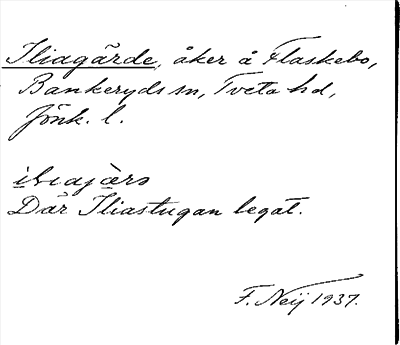 Iliagärde, åker å Flaskebo,
Bankeryds sn, Tveta hd,
Jönk. l.
Där Iliastugan legat.
F. Neij 1937.